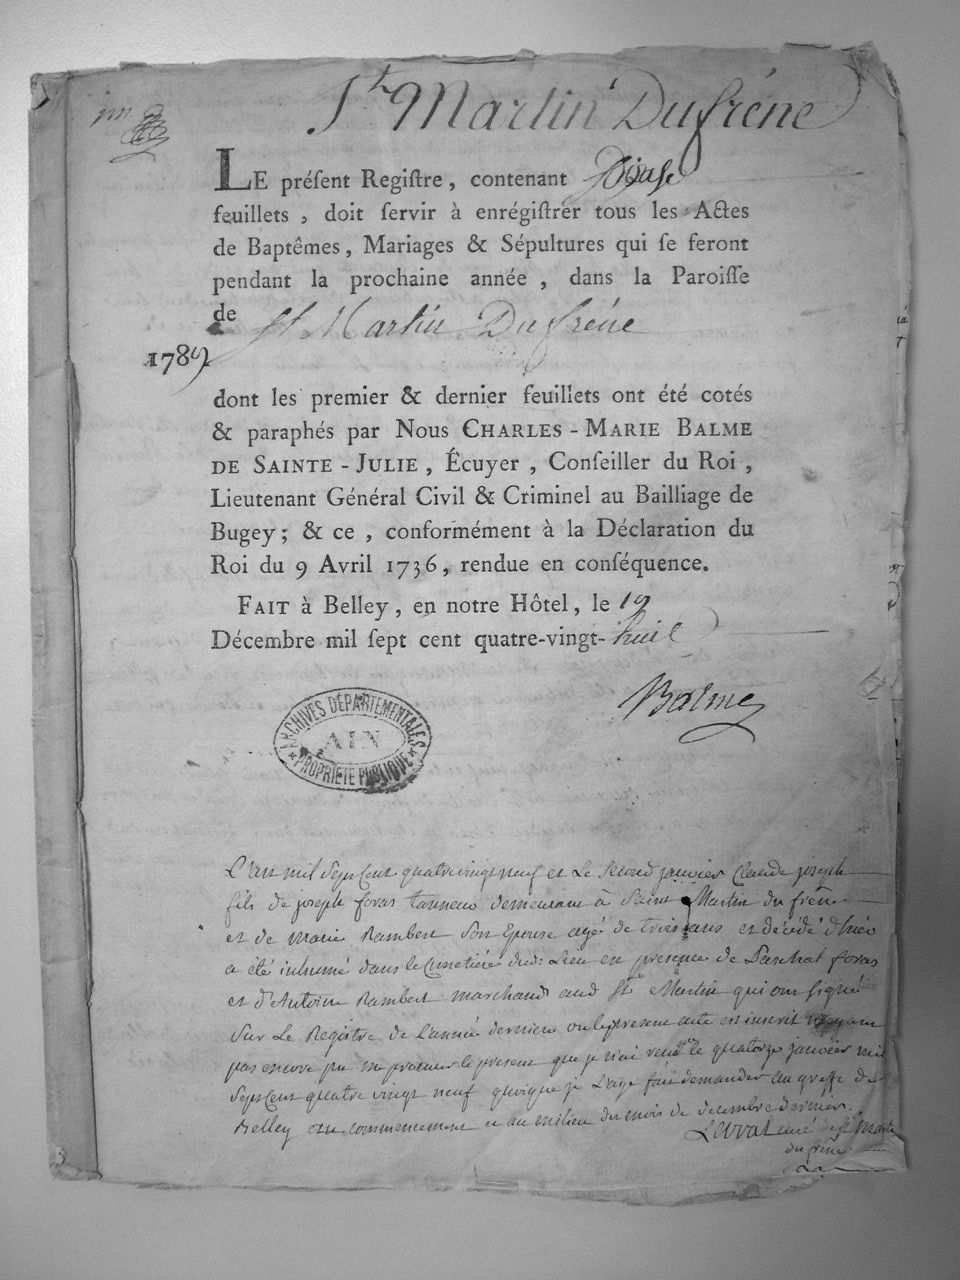 St Martin Dufréne
LE préſent Regiſtre, contenant Douse
feuillets, doit ſervir à enrégiſtrer tous les Actes
de Baptêmes, Mariages & Sépultures qui ſe feront
pendant la prochaine année, dans la Paroiſſe
de St Martin Dufréne
1789
dont les premier & dernier feuillets ont été cotés
& paraphés par Nous CHARLES-MARIE BALME
DE SAINTE-JULIE, Écuyer, Conſeiller du Roi,
Lieutenant Général Civil & Criminel au Bailliage de
Bugey; & ce, conformément à la Déclaration du
Roi du 9 Avril 1736, rendue en conſéquence.
FAIT à Belley, en notre Hôtel, le 19
Décembre mil ſept cent quatre-vingt-huit
Balme
ARCHIVES DÉPARTEMENTALES
AIN
PROPRIÉTÉ PUBLIQUE
L'an mil sept cent quatrevingt neuf et Le second janvier Claude joseph
fils de joseph foras tanneur demeurant à Saint Martin du frêne
et de Marie Rambert Son Epouse agé de trois ans et décédé d'hier
a été inhumé dans le Cimetière dudt Lieu en presence de Paschal foras
et d'Antoine Rambert marchand aud St Martin qui ont signé
Sur Le Registre de L'année derniere ou le present acte est inscrit n'ayant
pas encore pu me procurer le present que je n'ai reçu que le quatorze janvier mil
Sept Cent quatre vingt neuf quoique je L'aye fait demander au greffe de
Belley au commencement et au milieu du mois de decembre dernier.
Levrat curé de St Martin
du frêne